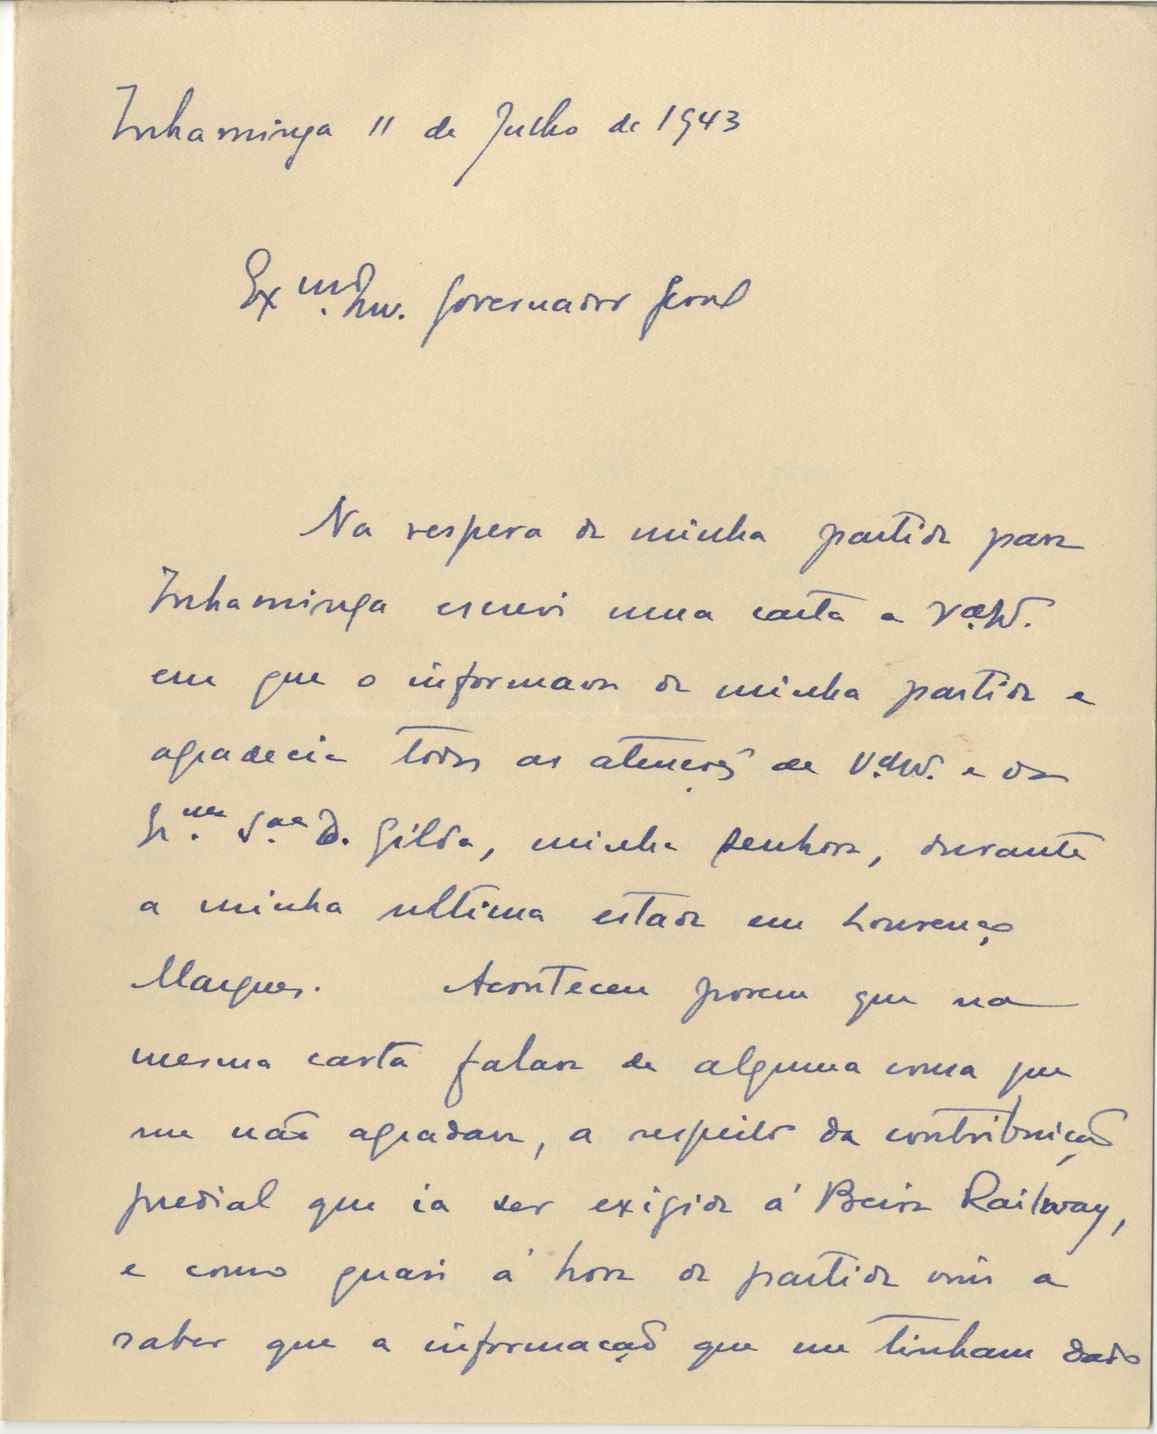 Inhaminga 11 de Julho de 1943
Exmo. Snr. Governador Geral
Na vespera da minha partida para
Inhaminga escrevi uma carta a V.
em que o informava da minha partida e
agradecia todas as atenções de V. e da
Sra. D. Gilda, minha senhora, durante
a minha ultima estada em Lourenço
Marques. Aconteceu porem que na
mesma carta falava de alguma cousa que
me não agradava, a respeito da contribuição
predial que ia ser exigida á Beira Railway,
e como quasi á hora da partida vim a
saber que a informação que me tinham dado